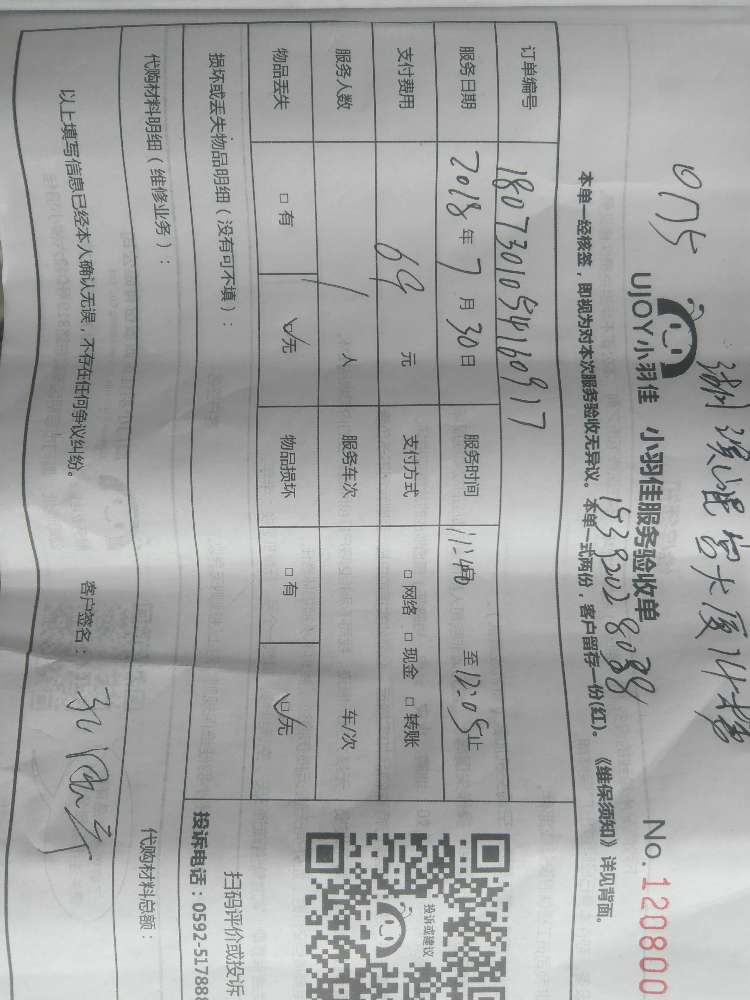 大厦14楼
UJOY小羽佳 小羽佳服务验收单 No. 120800
本单一经核签，即视为对本次服务验收无异议。本单一式两份，客户留存一份(红)。《维保须知》详见背面。
订单编号 1807301054160917
服务日期 2018年7月30日 服务时间 11:40 至 12:05止
支付费用 69 元 支付方式 □ 网络 □ 现金 □ 转账
服务人数 1 人 服务车次 车/次
物品丢失 □ 有 ☑无 物品损坏 □ 有 ☑无
损坏或丢失物品明细（没有可不填）：
代购材料明细（维修业务）： 代购材料总额：
以上填写信息已经本人确认无误，不存在任何争议纠纷。 客户签名：
投诉或建议
扫码评价或投诉
投诉电话：0592-517888